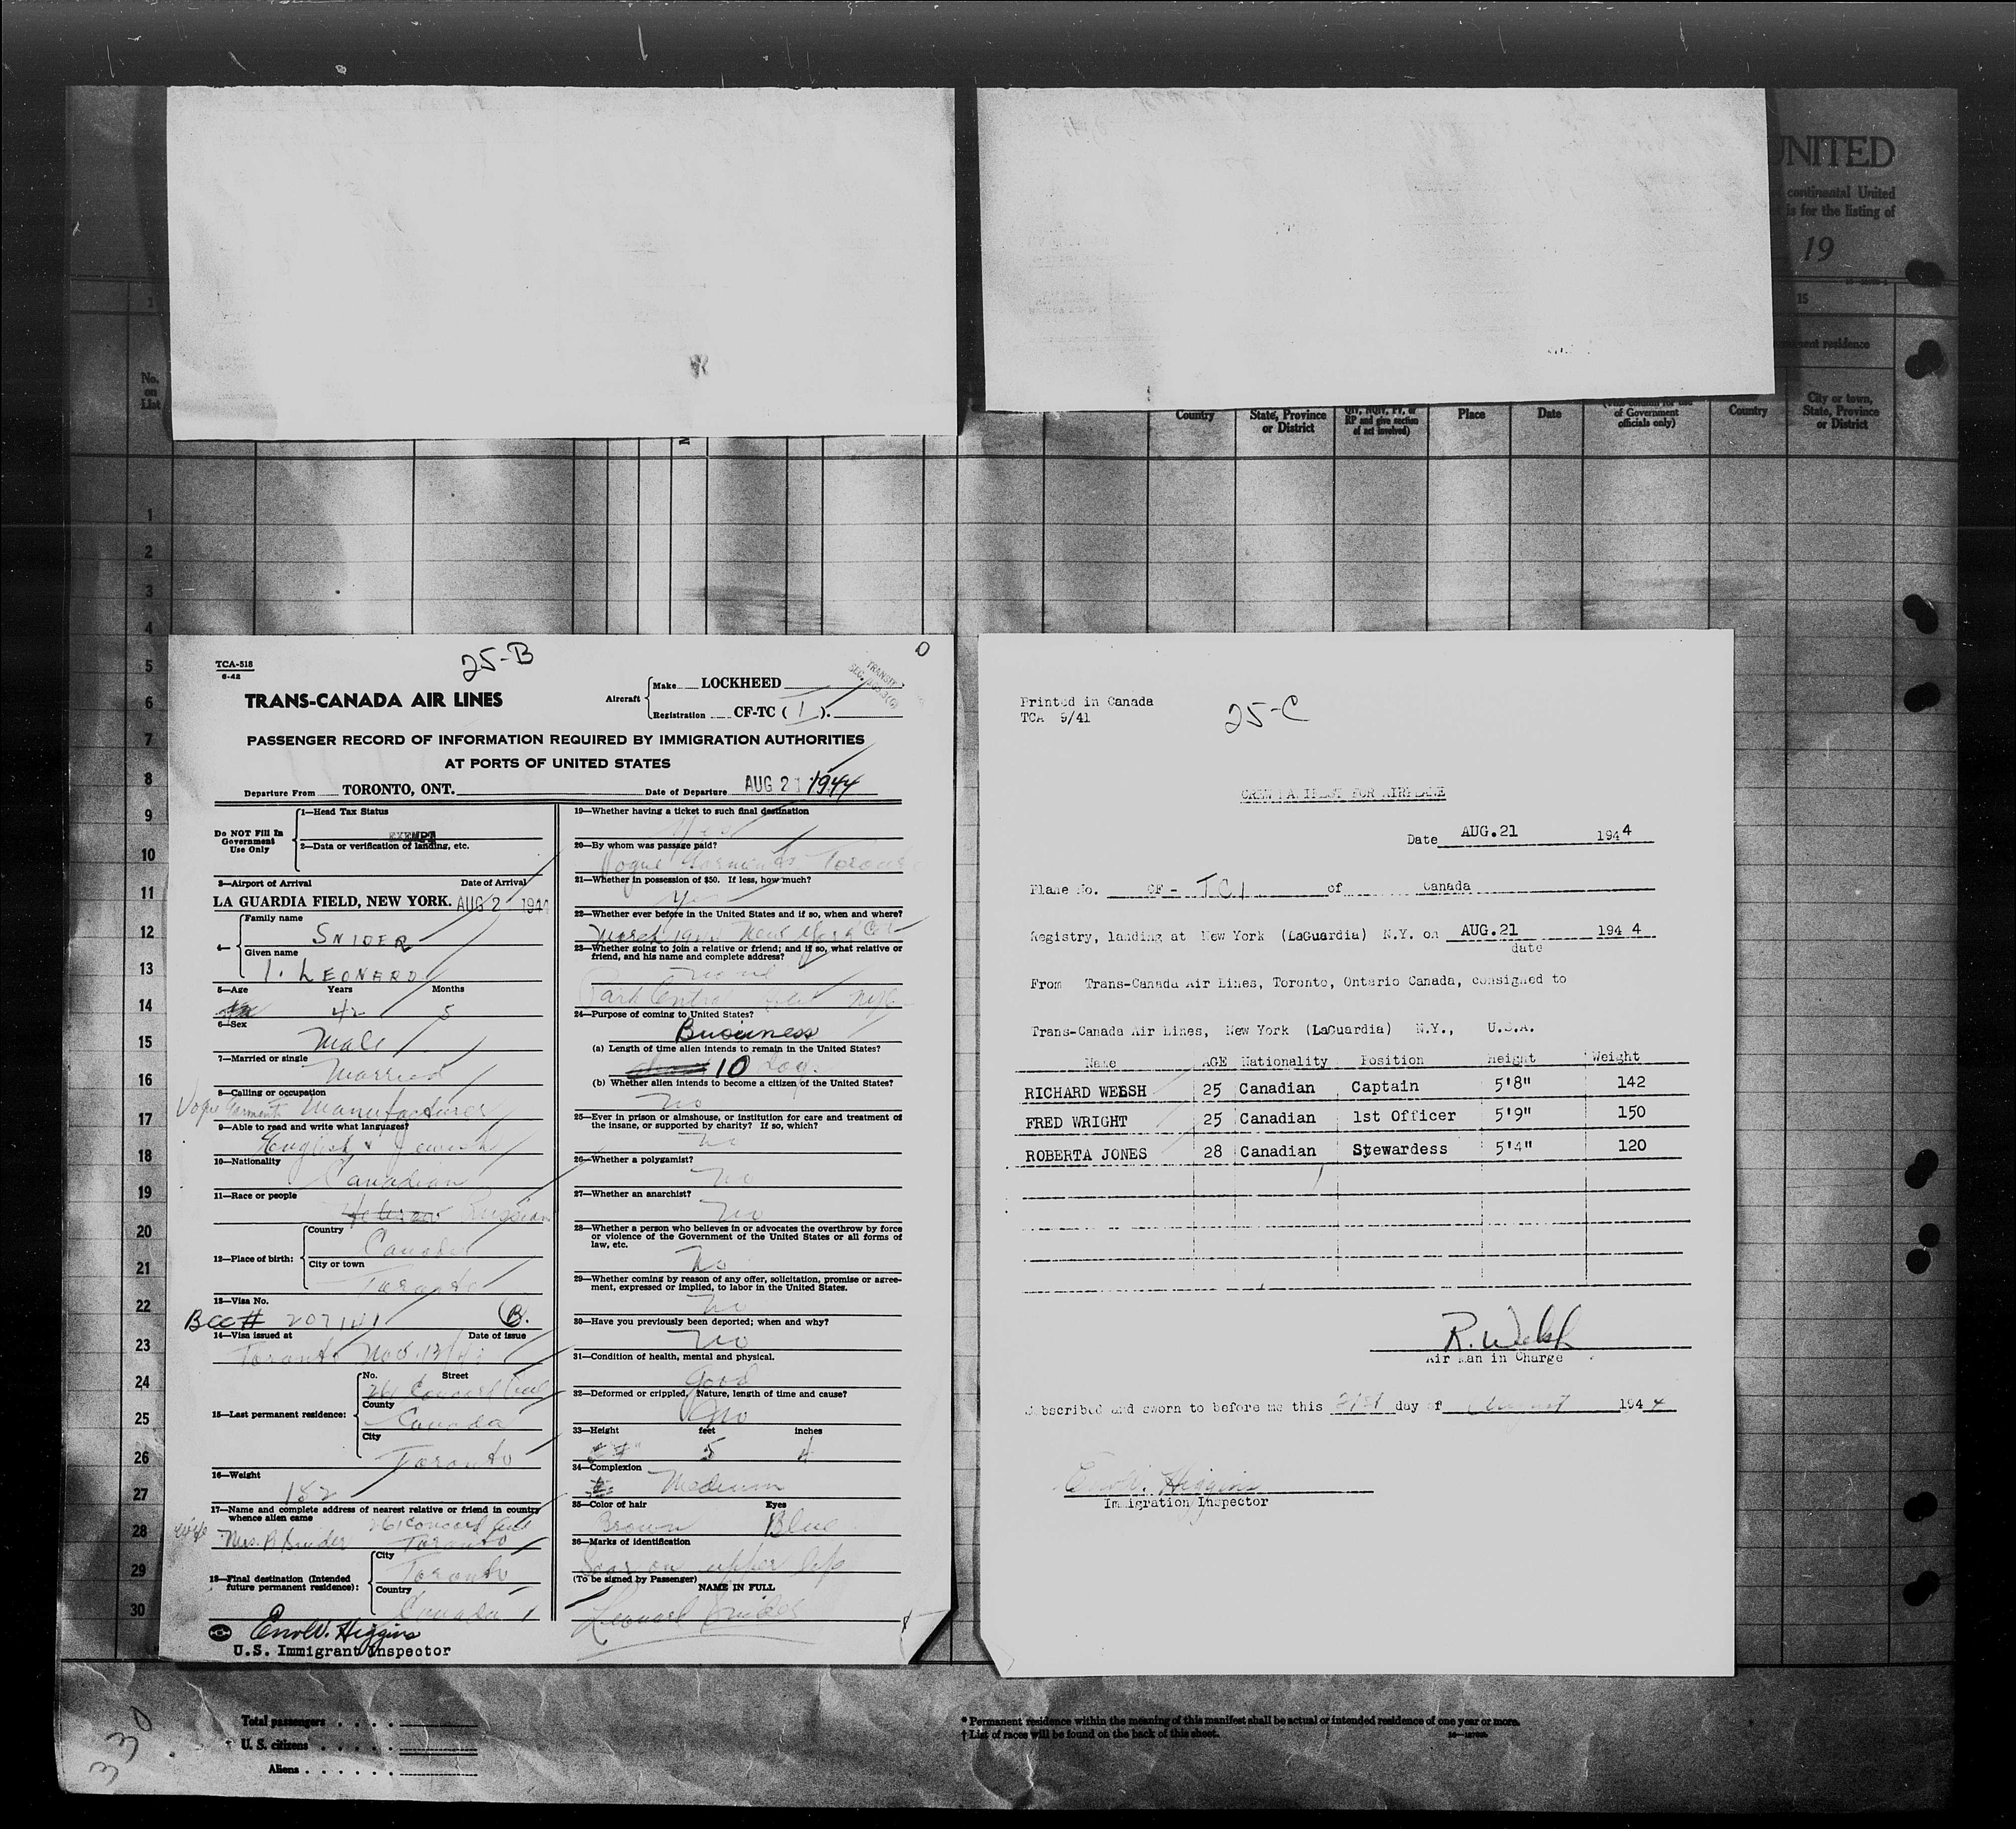 UNITED
continental United
is for the listing of
19
15
permanent residence
No.
on
List
Country
State, Province
or District
QIV, NQIV, PV, or
RP and give section
of act involved)
Place
Date
(This column for use
of Government
officials only)
Country
City or town,
State, Province
or District
1
2
3
4
5
6
7
8
9
10
11
12
13
14
15
16
17
18
19
20
21
22
23
24
25
26
27
28
29
30
TCA-518
6-42
25-B
TRANS-CANADA AIR LINES
Aircraft
Make LOCKHEED
Registration CF-TC ( I ).
PASSENGER RECORD OF INFORMATION REQUIRED BY IMMIGRATION AUTHORITIES
AT PORTS OF UNITED STATES
Departure From TORONTO, ONT. Date of Departure AUG 21 1944
Do NOT Fill In
Government
Use Only
1—Head Tax Status
EXEMPT
2—Data or verification of landing, etc.
3—Airport of Arrival Date of Arrival
LA GUARDIA FIELD, NEW YORK. AUG 2 1944
4—
Family name
SNIDER
Given name
I. LEONARD
5—Age Years Months
42 5
6—Sex
Male
7—Married or single
Married
8—Calling or occupation
Vogue Garments Manufacturer
9—Able to read and write what languages?
English & Jewish
10—Nationality
Canadian
11—Race or people
Hebrew Russian
12—Place of birth:
Country
Canada
City or town
Toronto
13—Visa No.
BCC# 207141 B.
14—Visa issued at Date of issue
Toronto Nov. 13/
15—Last permanent residence:
No. Street
261 Concord Ave
County
Canada
City
Toronto
16—Weight
182
17—Name and complete address of nearest relative or friend in country
whence alien came
wife Mrs. B Snider 261 Concord Ave
Toronto
18—Final destination (Intended
future permanent residence):
City
Toronto
Country
Canada
Errol W. Higgins
U.S. Immigrant Inspector
19—Whether having a ticket to such final destination
Yes
20—By whom was passage paid?
Vogue Garments Toronto
21—Whether in possession of $50. If less, how much?
Yes
22—Whether ever before in the United States and if so, when and where?
March 1944 New York City
23—Whether going to join a relative or friend; and if so, what relative or
friend, and his name and complete address?
none
Park Central Hotel NYC
24—Purpose of coming to United States?
Business
(a) Length of time alien intends to remain in the United States?
10 days
(b) Whether alien intends to become a citizen of the United States?
No
25—Ever in prison or almshouse, or institution for care and treatment of
the insane, or supported by charity? If so, which?
No
26—Whether a polygamist?
No
27—Whether an anarchist?
No
28—Whether a person who believes in or advocates the overthrow by force
or violence of the Government of the United States or all forms of
law, etc.
No
29—Whether coming by reason of any offer, solicitation, promise or agree-
ment, expressed or implied, to labor in the United States.
No
30—Have you previously been deported; when and why?
No
31—Condition of health, mental and physical.
Good
32—Deformed or crippled, Nature, length of time and cause?
No
33—Height feet inches
5 4
34—Complexion
Medium
35—Color of hair Eyes
Brown Blue
36—Marks of identification
Scar on upper lip
(To be signed by Passenger)
NAME IN FULL
Leonard Snider
Printed in Canada
TCA 9/41
25-C
CREW MANIFEST FOR AIRPLANE
Date AUG.21 1944
Plane No. CF - TC1 of Canada
Registry, landing at New York (LaGuardia) N.Y. on AUG.21 1944
date
From Trans-Canada Air Lines, Toronto, Ontario Canada, consigned to
Trans-Canada Air Lines, New York (LaGuardia) N.Y., U.S.A.
Name AGE Nationality Position Height Weight
RICHARD WELSH 25 Canadian Captain 5'8" 142
FRED WRIGHT 25 Canadian 1st Officer 5'9" 150
ROBERTA JONES 28 Canadian Stewardess 5'4" 120
R. Welsh
Air Man in Charge
Subscribed and sworn to before me this 21st day of August 1944
Errol W. Higgins
Immigration Inspector
Total passengers
U. S. citizens
Aliens
330
* Permanent residence within the meaning of this manifest shall be actual or intended residence of one year or more.
† List of races will be found on the back of this sheet.